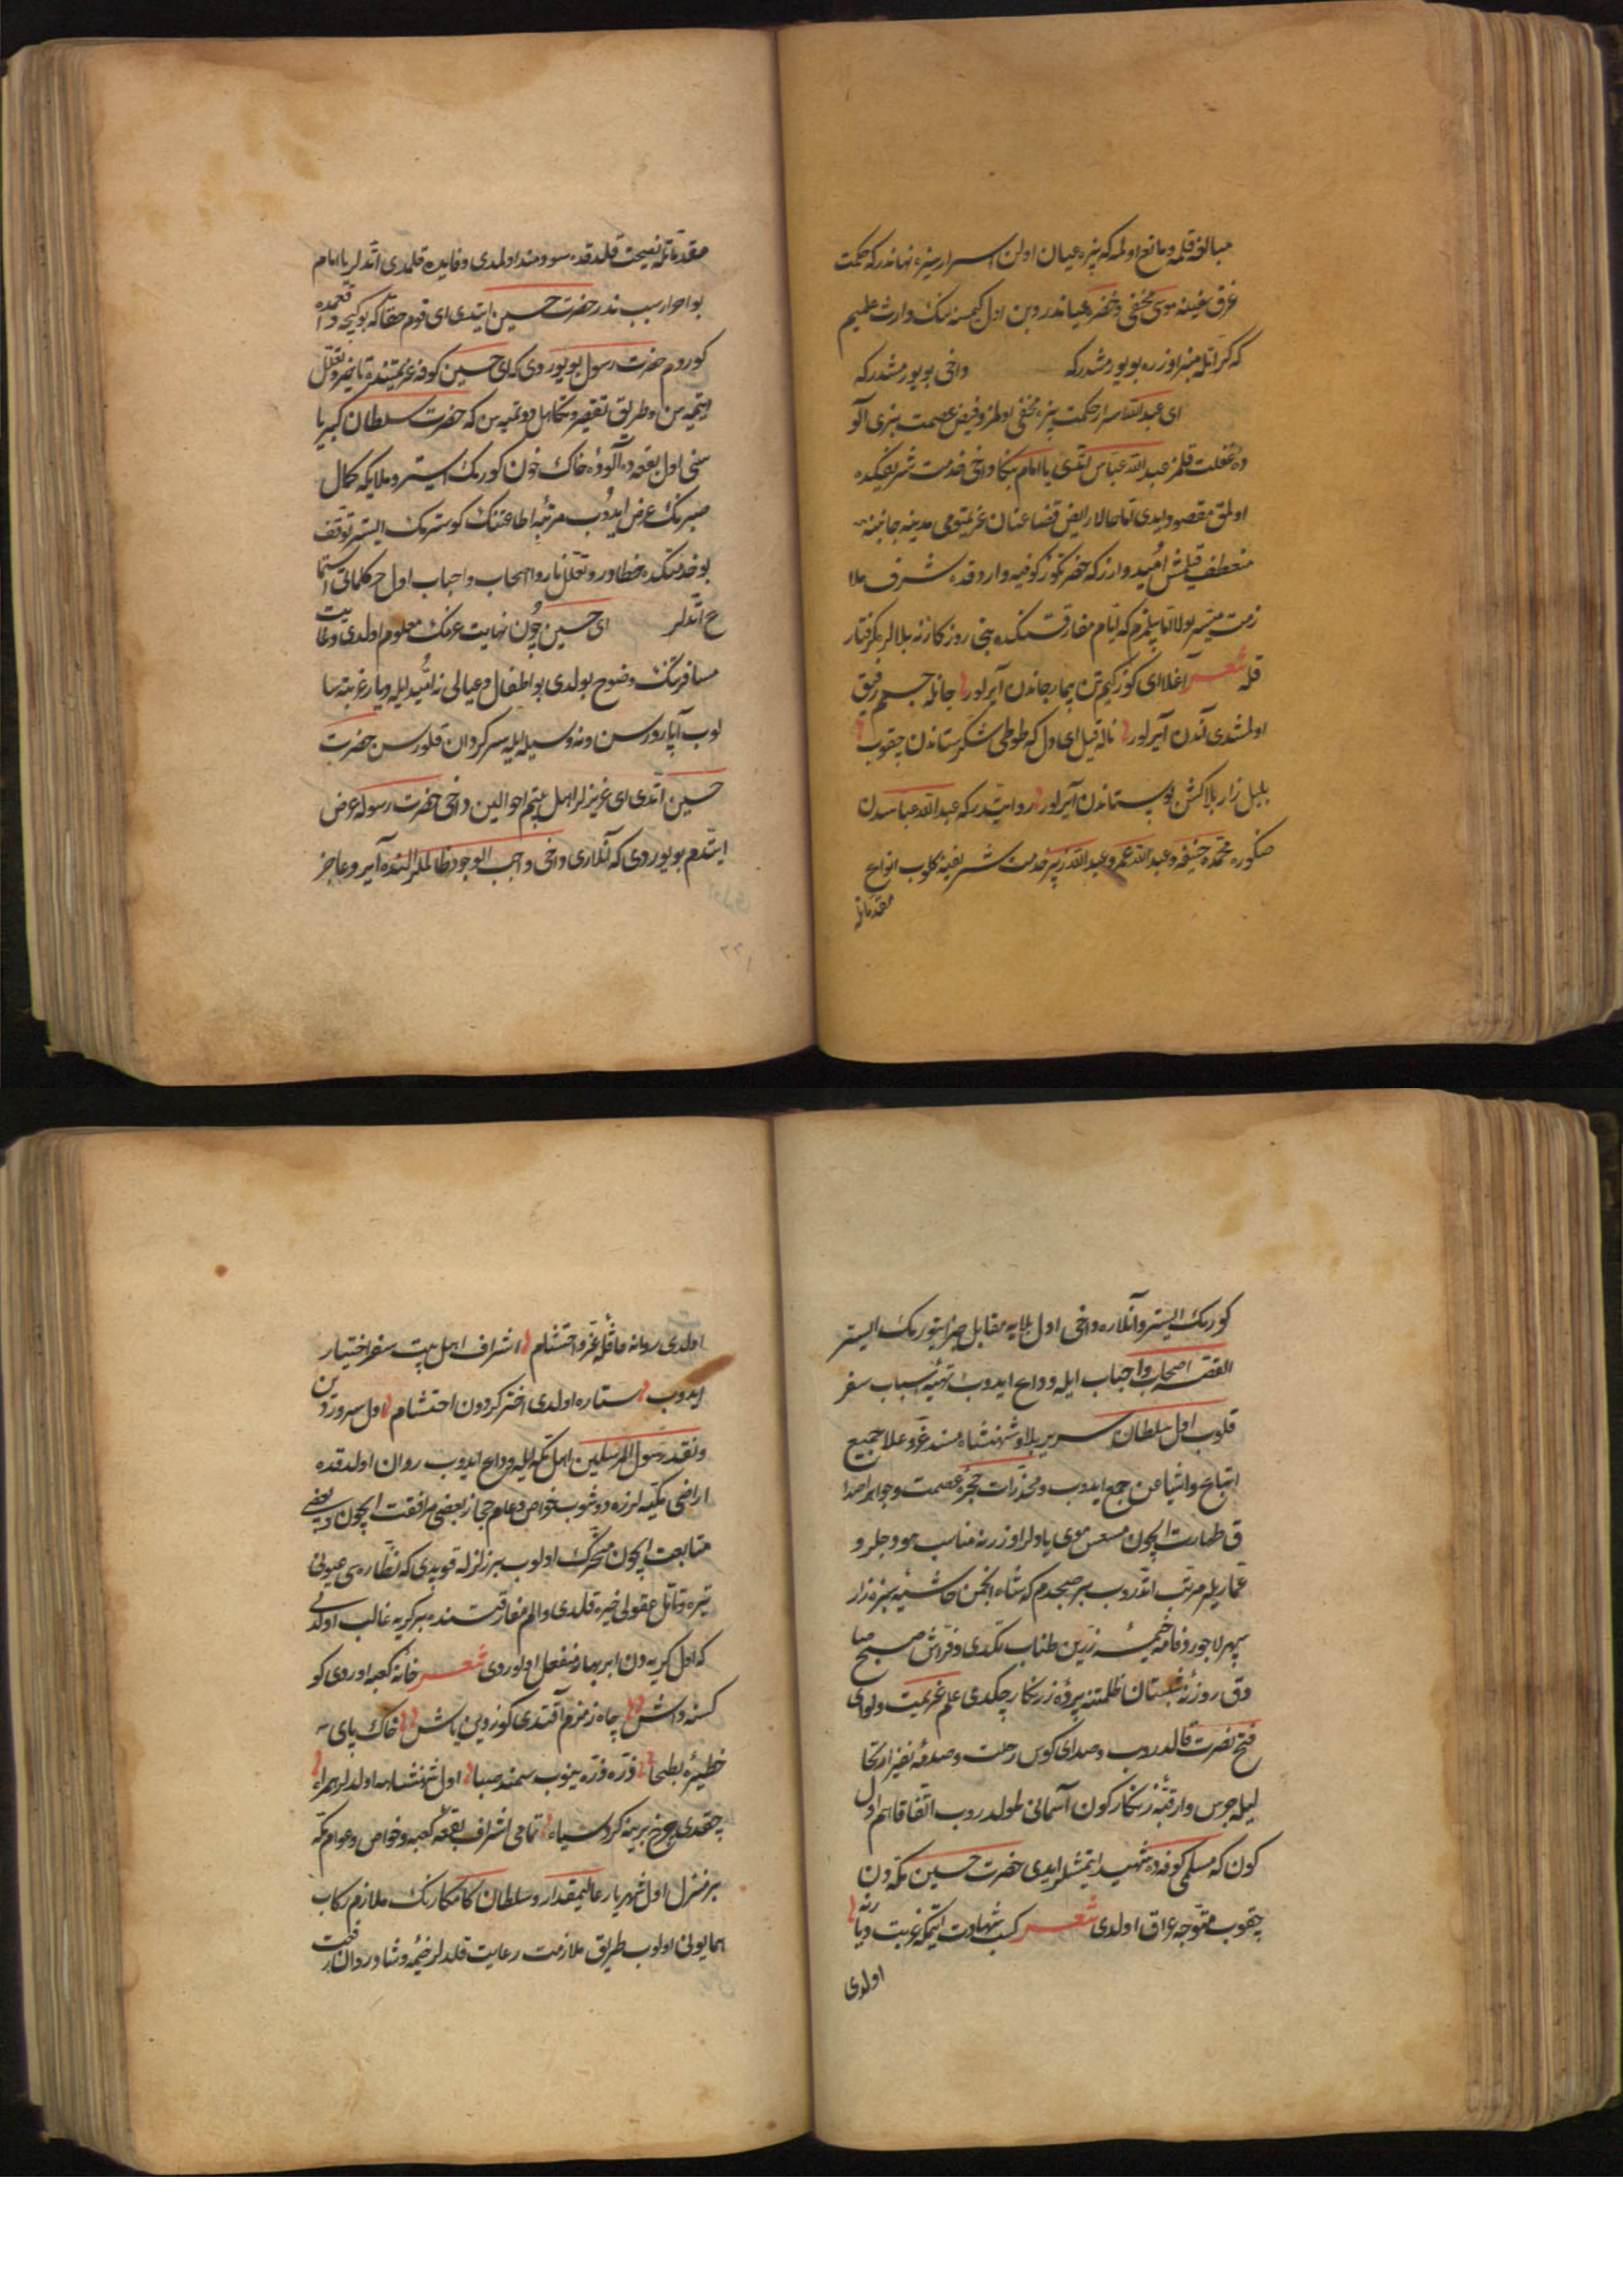 مبالغه قلمه و مانع اولمه که بزه عیان اولن اسرار سزه نهاندر که حکمت
غرق سفینه موسی مخفی و خضره عیاندر و بن اول کیمسه‌نک وارث علمیم
که کراتله منبر اوزره بویورمشدر که داخی بویورمشدر که
ای عبد الله اسرار حکمت بزه مخفی اولمز و فیض عصمت بزی آلو
ده غفلت قلمز عبد الله عباس ایتدی یا امام بنکا داخی خدمت شریفکده
اولمق مقصود ایدی اما حالا رایض قضا عنان عزیمتومی مدینه جانبنه
منعطف قلمش امیدوارز که حضرتکوز کوفیه وارد قده شرف ملا
زمت میسر اولا اما بیلمزم که ایام مفارقتکده بنی روزکار نه بلالره گرفتار
قله شعر آغلا ای کوز کیم تن بیمار جاندن آیرلور جانله جسم رفیق
اولمشدی آندن آیرلور ناله قیل ای دل که طوطی شکرستاندن چقوب
بلبل زار بلاکش بوستاندن آیرلور روایتدر که عبد الله عباسدن
صکوره محمد حنیفه و عبد الله عمر و عبد الله زبیر خدمت شریفینه کلوب انواع
مقدماتله
مقدماتله نصیحت قلدقده سودمند اولمدی و فایده قلمدی اتدلر یا امام
بو اصراره سبب ندر حضرت حسین ایتدی ای قوم حقا که بو کیجه واقعه‌مده
کوردوم حضرت رسول بویوردی که ای حسین کوفه عزیمتنده تاخیر و تعلل
ایتمیه‌سن و طریق تقصیر و تکاهل دوتمیه‌سن که حضرت سلطان کبریا
سنی اول بقعه‌ده آلوده خاک خون کورمک ایستر و ملایکه کمال
صبرنک عرض ایدوب مرتبه اطاعتنک کوسترمک ایستر توقف
بو خدمتکده خطادور و تعلل ناروا اصحاب و احباب اول حر کلماتی استما
ع اتدلر ای حسین چون نهایت عزمنک معلوم اولدی و غایت
مسافرتنک وضوح بولدی بو اطفال و عیالی نه امید ایله دیار غربته سا
لوب آپارورسن و نه وسیله ایله سرکردان قلورسن حضرت
حسین اتدی ای عزیزلر اهل بیتم احوالین داخی حضرت رسوله عرض
ایتدم بویوردی که آنلاری داخی واجب الوجود ظالملر النده اسیر و عاجز
کورمک ایستر و آنلاره داخی اول بلایه مقابل جزا یتورمک ایستر
القصه اصحاب و احباب ایله وداع ایدوب تهیه اسباب سفر
قلوب اول سلطان سریر بلا و شهنشاه مسند عز و علا جمیع
اتباع و اشیاعن جمع ایدوب و مخدرات حجره عصمت و جواهر اصدا
ف طهارت ایچون مسمس موی یادلر اوزرنه مناسب هودجلر و
عماریلر مرتب اتدروب بر صبحدم که شاه انجمن حاشیه سبزه‌زار
سپهر لاجورد فامه خیمه زرین طناب تکدی و فراش صبح صا
دق روزنه شبستان ظلمتنه پرده زرنکار چکدی علم عزیمت و لوای
فتح نصرت قالدروب و صدای کوس رحلت و صدمه نفیر ارتحا
لیله جرس وار قبه زنکارکون آسمانی طولدروب اتفاقا هم اول
کون که مسلمی کوفه‌ده شهید ایتمشلر ایدی حضرت حسین مکه‌دن
چقوب متوجه عراق اولدی شعر کسب شهادت ایتمکه غربت دیارنه
اولدی
اولدی روانه قافله عز و احتشام اشراف اهل بیت سفر اختیار
ایدوب ستاره اولدی اختر کردون احتشام اول سرور دین
و نقد رسول المرسلین اهل مکه ایله وداع ایدوب روان اولدقده
اراضی مکیه لرزه دوشوب خواص و عام حجاز بعضی مرافقت ایچون و بعضی
متابعت ایچون متحرک اولوب بر زلزله قوپدی که نظاره‌سی عیونی
تیره و تامل عقولی خیره قلدی و الم مفارقتنده بر کریه غالب اولدی
که اول کریه‌دن ابر بهار منفعل اولوردی شعر خانه کعبه اوردی کو
کسنه داش چاه زمزم آقتدی کوزدین یاش خاک پای
خطیره بطحا ذره ذره بینوب سمند صبا اول شهنشاهه اولدلر همراه
چقدی چرخ برینه کرد سیاه تمامی اشراف بقعه کعبه و خواص و عوام مکه
بر منزل اول شهریار عالیمقدار و سلطان کامکارنک ملازم رکاب
همایونی اولوب طریق ملازمت رعایت قلدلر خیمه و شادروان رفعت